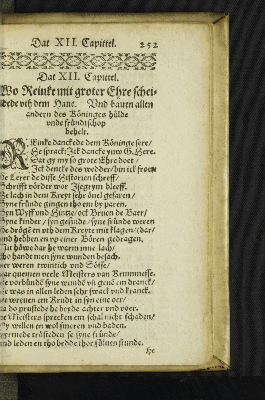 Dat XII. Capittel. 252
Dat XII. Capittel.
Wo Reinke mit groter Ehre schei-
dede vth dem Haue. Vnd bauen allen
andern des Köninges hülde
vnde fründtschop
behelt.
REinke danckede dem Köninge sere/
He sprack: Ick dancke yuw G. Here.
Dat gy my so grote Ehre doet/
Ick dencke des wedder/
De Lerer de disse Historien schreff/
Schrifft vörder wor Isegrym bleeff.
He lach in dem Kreyt sehr öuel gefaren/
Syne fründe gingen tho em by paren.
Syn Wyff vnd Hintze/ ock Bruen de Baer/
Syne Kinder/ syn gesinde/ syne fründe weren
De drögē en vth dem Kreyte mit klagen/
vnd hebben en vp einer Bören gedragen.
Mit höwe dar he warm inne lach/
Tho handt men syne wunden besach.
Der weren twintich vnd Sösse/
Dar quemen veele Meisters van
De vorbünde syne wunde vñ geuē em dranck/
He was in allen leden sehr swack vnd kranck.
Se wreuen em Krudt in syn eine oer/
De Meisters spreken em schal nicht schaden/
Wy willen en wol smeren vnd baden.
vnd leden en tho bedde
He